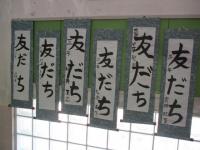 友だち
友だち
友だち
友だち
友だち
友だち